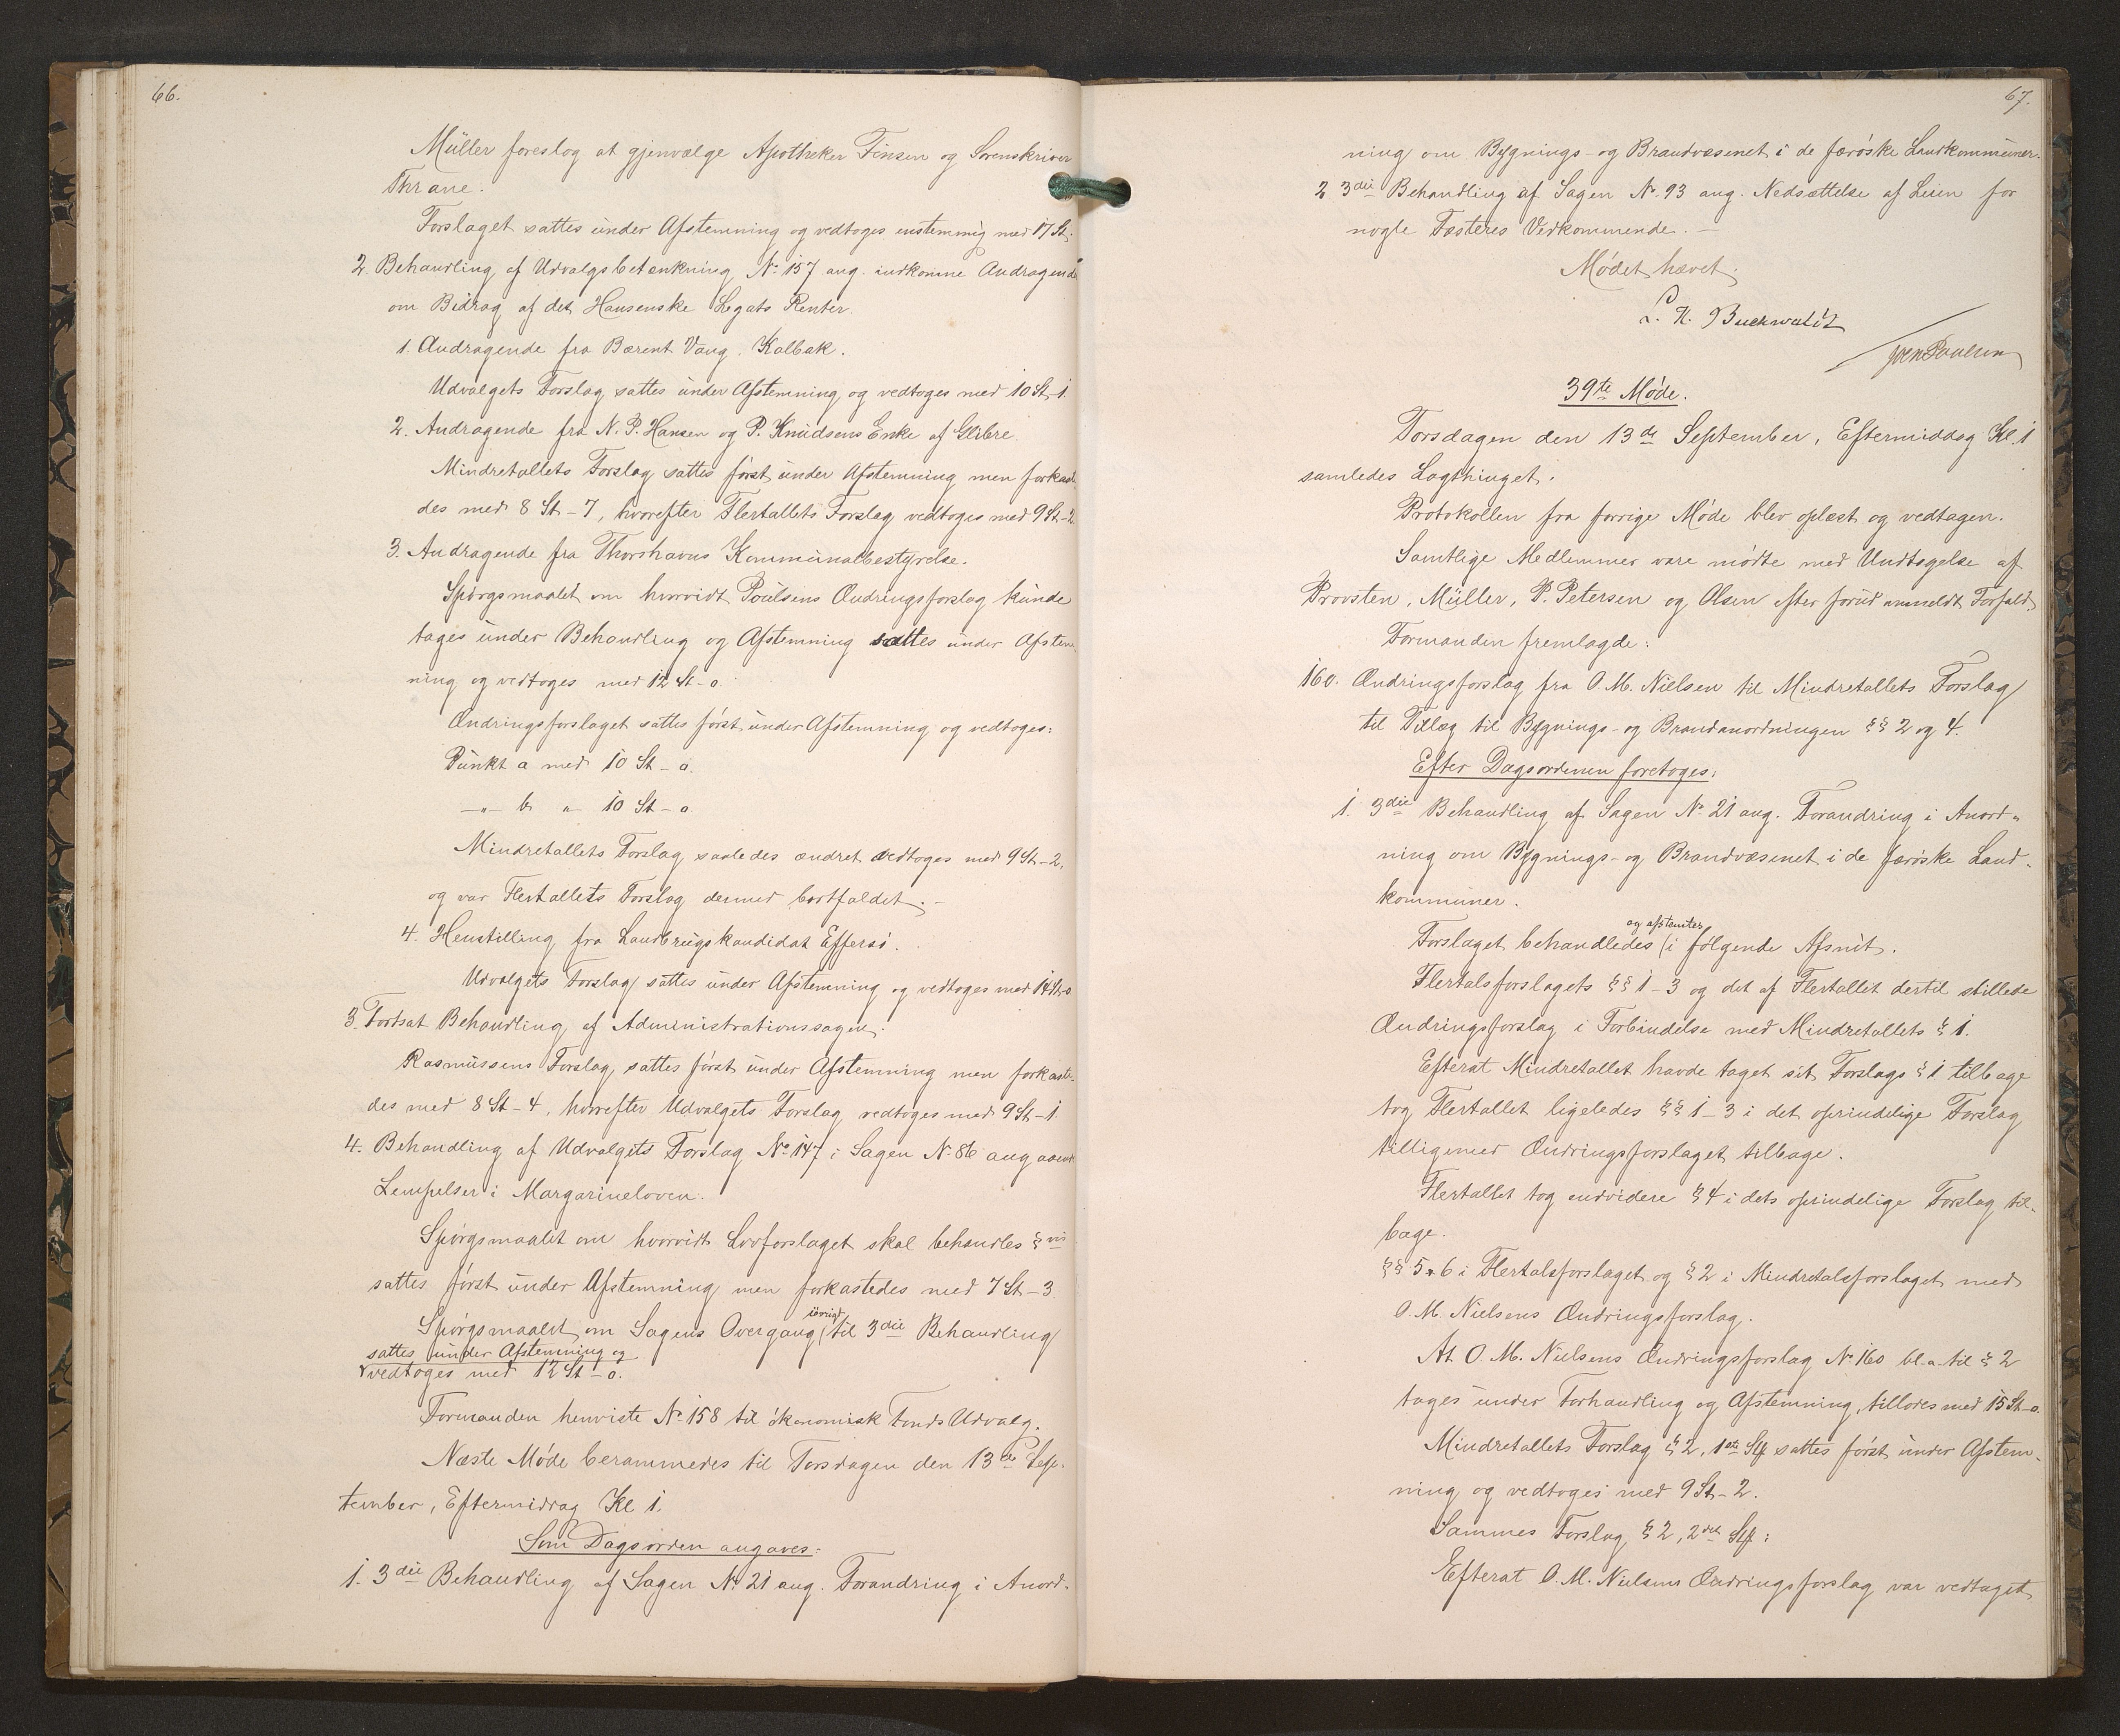 66.
Müller foreslog at gjenvælge Apotheker Finsen og Sorenskriver
Thrane.
Forslaget sattes under Afstemning og vedtoges enstemmig med 17 St.
2. Behandling af Udvalgsbetænkning No 157 ang. indkomne Andragende
om Bidrag af det Hansenske Legats Renter.
1. Andragende fra Bærent Vang, Kalbak.
Udvalgets Forslag sattes under Afstemning og vedtoges med 10 St-1.
2. Andragende fra N. P. Hansen og P. Knudsens Enke af Glibre.
Mindretallets Forslag sattes først under Afstemning men forkaste
des med 8 St-7, hvorefter Flertallets Forslag vedtoges med 9 St-2.
3. Andragende fra Thorshavns Kommunalbestyrelse.
Spørgsmaalet om hvorvidt Poulsens Ændringsforslag kunde
tages under Behandling og Afstemning sattes under Afstem
ning og vedtoges med 12 St-0.
Ændringsforslaget sattes først under Afstemning og vedtoges:
Punkt a med 10 St-0.
-„- b „ 10 St-0
Mindretallets Forslag saaledes ændret vedtoges med 9 St-2,
og var Flertallets Forslag dermed bortfaldet. -
4. Henstilling fra Landbrugskandidat Effersø.
Udvalgets Forslag sattes under Afstemning og vedtoges med 14 St-0
3. Fortsat Behandling af Administrationssagen.
Rasmussens Forslag sattes først under Afstemning men forkaste-
des med 8 St-4, hvorefter Udvalgets Forslag vedtoges med 9 St-1.
4. Behandling af Udvalgets Forslag No 147 i Sagen No 86 ang
Lempelser i Margarineloven.
Spørgsmaalet om hvorvidt Lovforslaget skal behandles § vis
sattes først under Afstemning men forkastedes med 7 St-3.
Spørgsmaalet om Sagens Overgang iøvrigt til 3die Behandling
sattes under Afstemning og
vedtoges med 12 St-0.
Formanden henviste No 158 til økonomisk Fonds Udvalg.
Næste Møde berammedes til Torsdagen den 13de Sep-
tember, Eftermiddag Kl 1.
Som Dagsorden angaves:
1. 3die Behandling af Sagen No 21 ang. Forandring i Anord-
67.
ning om Bygnings- og Brandvæsenet i de færøske Landkommuner.
2 3die Behandling af Sagen No 93 ang. Nedsættelse af Leien for
nogle Fæsteres Vedkommende. -
Mødet hævet.
L. K. Buchwaldt
Joen Poulsen
39te Møde.
Torsdagen den 13de September, Eftermiddag Kl. 1
samledes Lagthinget.
Protokollen fra forrige Møde blev oplæst og vedtagen.
Samtlige Medlemmer vare mødte med Undtagelse af
Provsten, Müller, P. Petersen og Olsen efter forud anmeldt Forfald.
Formanden fremlagde:
160. Ændringsforslag fra O. M. Nielsen til Mindretallets Forslag
til Tillæg til Bygnings- og Brandanordningen §§ 2 og 4.
Efter Dagsordenen foretoges:
1. 3die Behandling af Sagen No 21 ang. Forandring i Anord-
ning om Bygnings- og Brandvæsenet i de færøske Land-
kommuner.
Forslaget behandledes og afstemtes i følgende Afsnit.
Flertalsforslagets §§ 1-3 og det af Flertallet dertil stillede
Ændringsforslag i Forbindelse med Mindretallets § 1.
Efterat Mindretallet havde taget sit Forslags § 1 tilbage
tog Flertallet ligeledes §§ 1-3 i det oprindelige Forslag
tilligemed Ændringsforslaget tilbage.
Flertallet tog endvidere § 4 i dets oprindelige Forslag til-
bage.
§§ 5 & 6 i Flertalsforslaget og § 2 i Mindretalsforslaget med
O. M. Nielsens Ændringsforslag.
At O. M. Nielsens Ændringsforslag No 160 bl. a. til § 2
tages under Forhandling og Afstemning, tillodes med 15 St-0.
Mindretallets Forslag § 2, 1ste Stk sattes først under Afstem-
ning og vedtoges med 9 St-2.
Sammes Forslag § 2, 2det Stk:
Efterat O. M. Nielsens Ændringsforslag var vedtaget